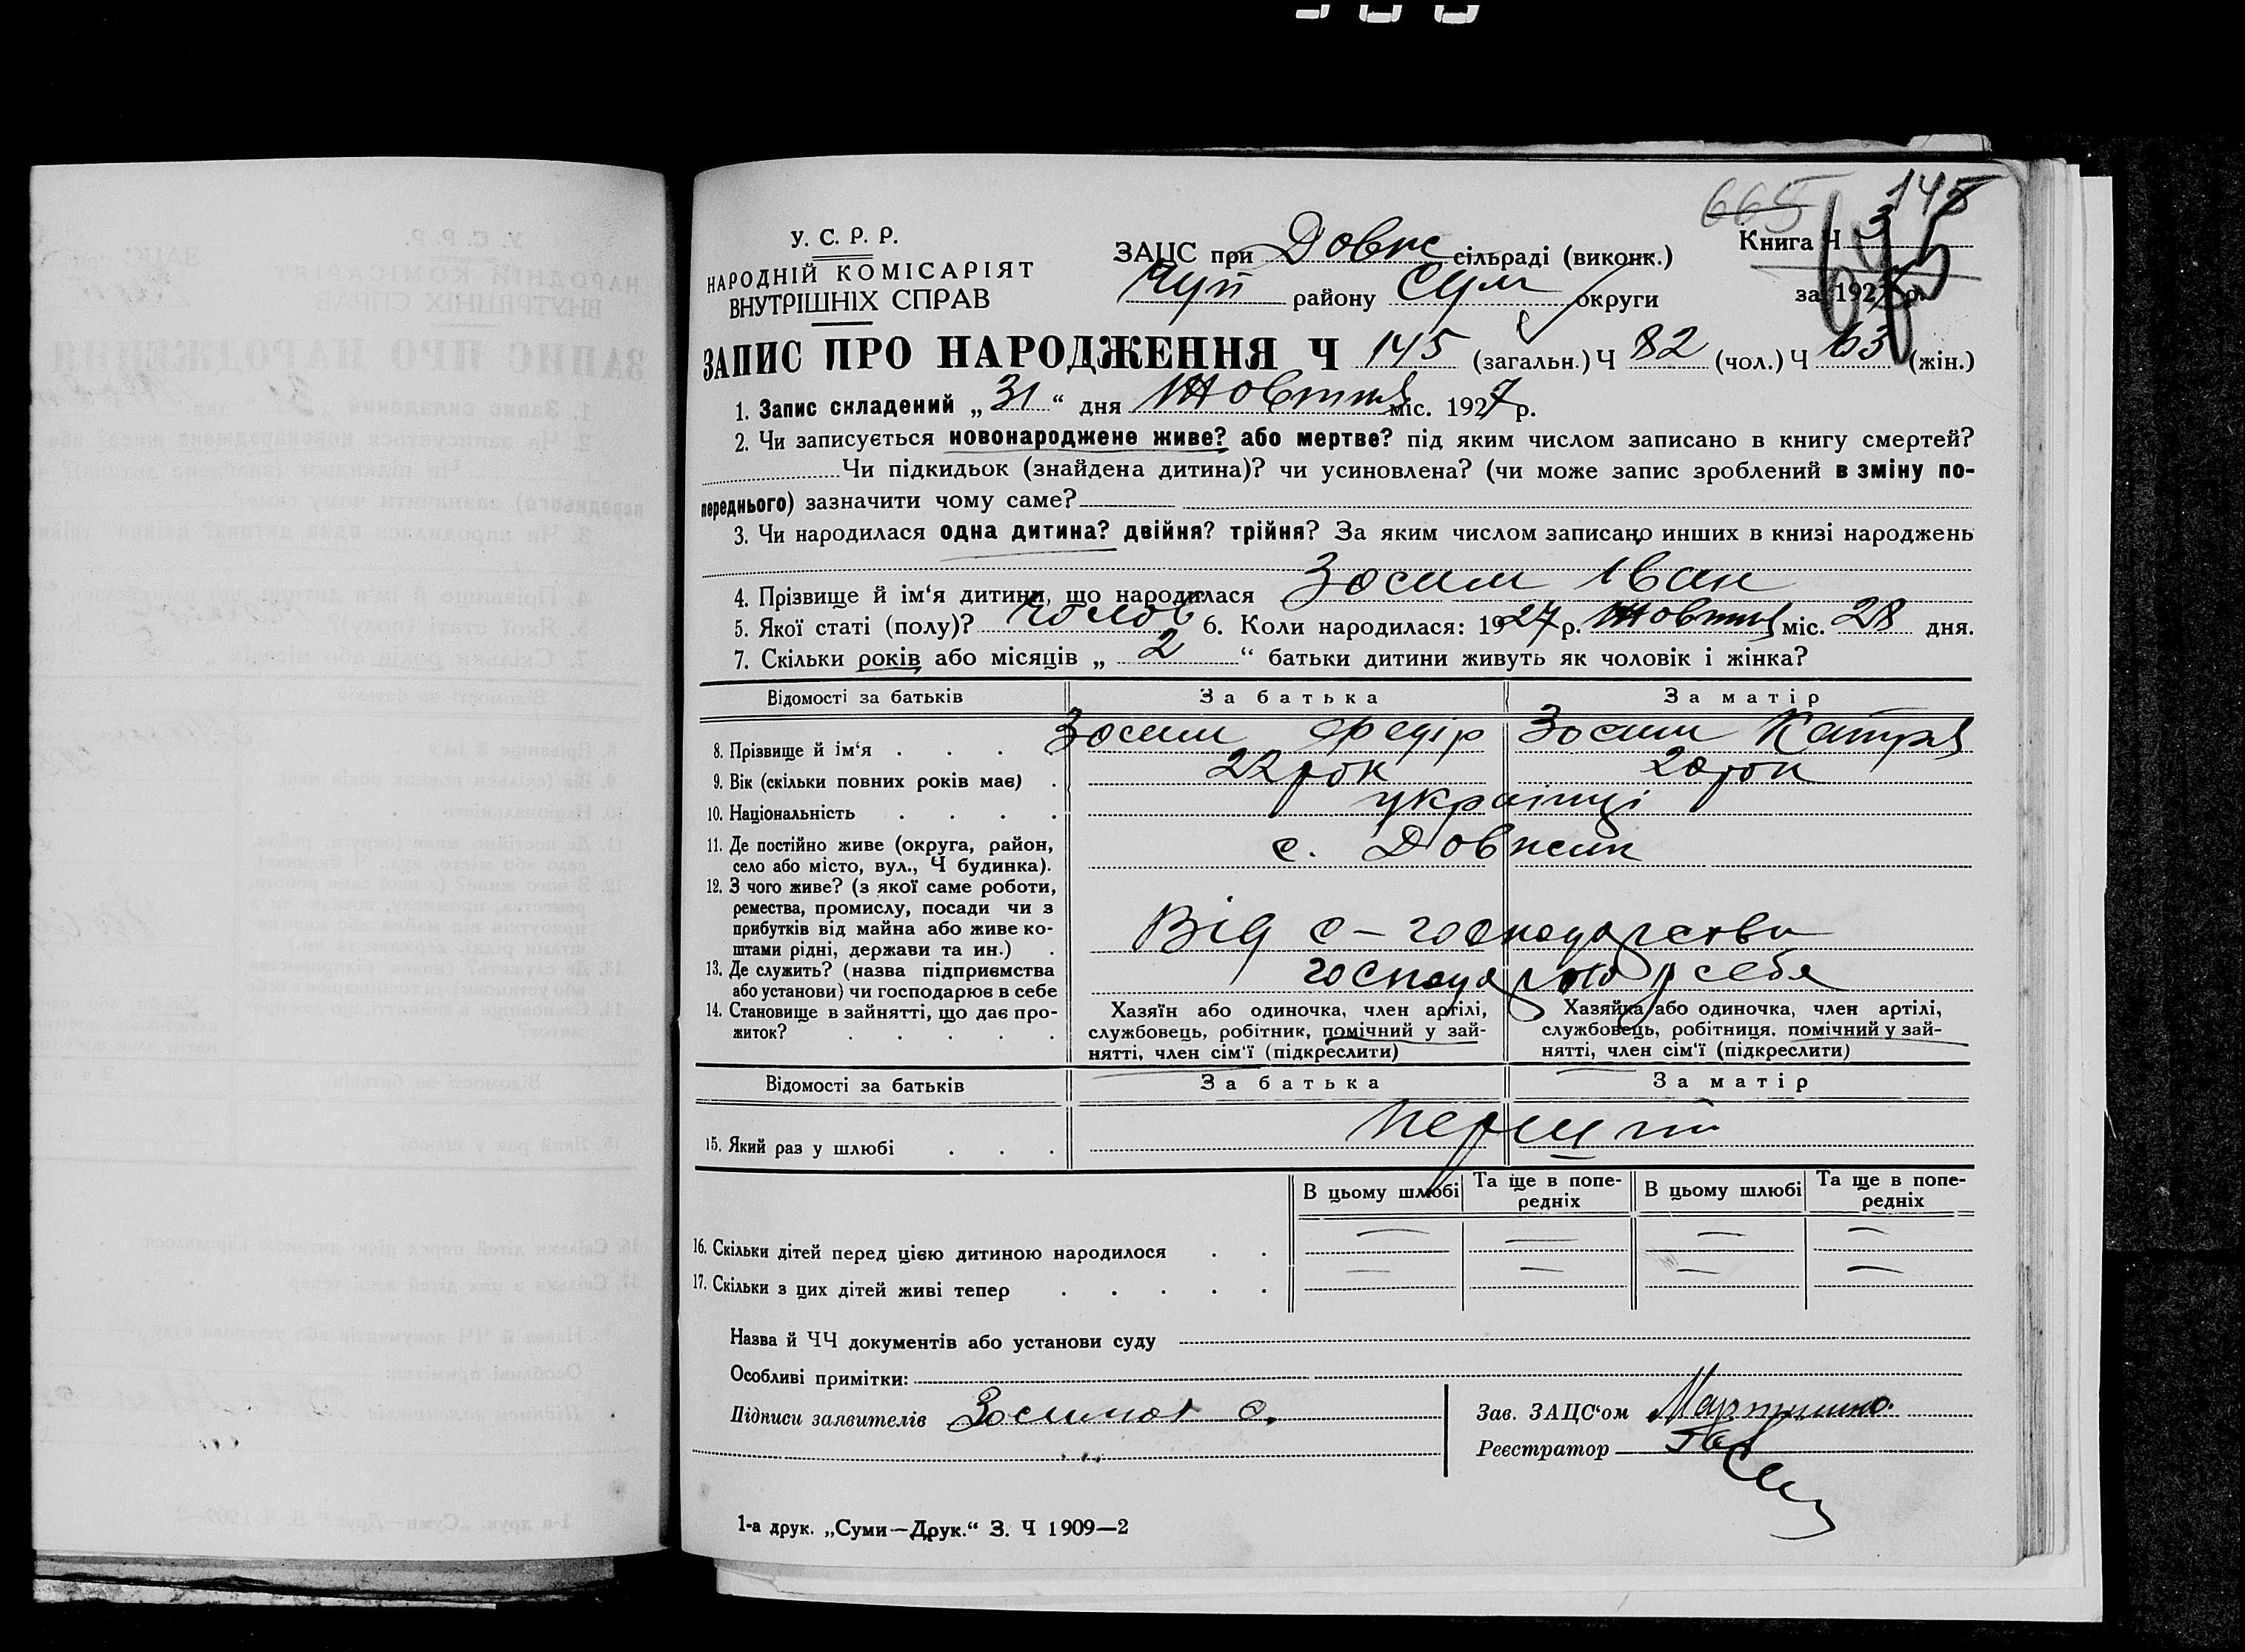 665 145
У. С. Р. Р.
НАРОДНІЙ КОМІСАРІЯТ
ВНУТРІШНІХ СПРАВ
ЗАЦС при Довж сільраді (виконк.)
Чуп району Сум округи
Книга Ч 3
за 1927 р.
ЗАПИС ПРО НАРОДЖЕННЯ Ч 145 (загальн.) Ч 82 (чол.) Ч 63 (жін.)
1. Запис складений „ 31 “ дня Жовтня міс. 1927 р.
2. Чи записується новонароджене живе? або мертве? під яким числом записано в книгу смертей?
Чи підкидьок (знайдена дитина)? чи усиновлена? (чи може запис зроблений в зміну по-
переднього) зазначити чому саме?
3. Чи народилася одна дитина? двійня? трійня? За яким числом записано инших в книзі народжень
4. Прізвище й ім‘я дитини, що народилася Зосим Іван
5. Якої статі (полу)? Чолов 6. Коли народилася: 1927 р. Жовтня міс. 28 дня.
7. Скільки років або місяців „ 2 “ батьки дитини живуть як чоловік і жінка?
Відомості за батьків За батька За матір
8. Прізвище й ім‘я . . . Зосим Федір Зосим Катря
9. Вік (скільки повних років має) . 22 рок 20 рок
10. Національність . . . . українці
11. Де постійно живе (округа, район,
село або місто, вул., Ч будинка). с. Довжик
12. З чого живе? (з якої саме роботи,
ремества, промислу, посади чи з
прибутків від майна або живе ко-
штами рідні, держави та ин.) . Від с-господарства
13. Де служить? (назва підприємства
або установи) чи господарює в себе господарюю у себе
14. Становище в зайнятті, що дає про-
житок? . . . . .
Хазяїн або одиночка, член артілі,
службовець, робітник, помічний у зай-
нятті, член сім‘ї (підкреслити)
Хазяйка або одиночка, член артілі,
службовець, робітниця, помічний у зай-
нятті, член сім‘ї (підкреслити)
Відомості за батьків За батька За матір
15. Який раз у шлюбі . . . перший
В цьому шлюбі Та ще в попе-
редніх В цьому шлюбі Та ще в попе-
редніх
16. Скільки дітей перед цією дитиною народилося . . — — — —
17. Скільки з цих дітей живі тепер . . . . . — — — —
Назва й ЧЧ документів або установи суду
Особливі примітки:
Підписи заявителів
Зав. ЗАЦС‘ом
Реєстратор
1-а друк. „Суми—Друк.“ З. Ч 1909—2